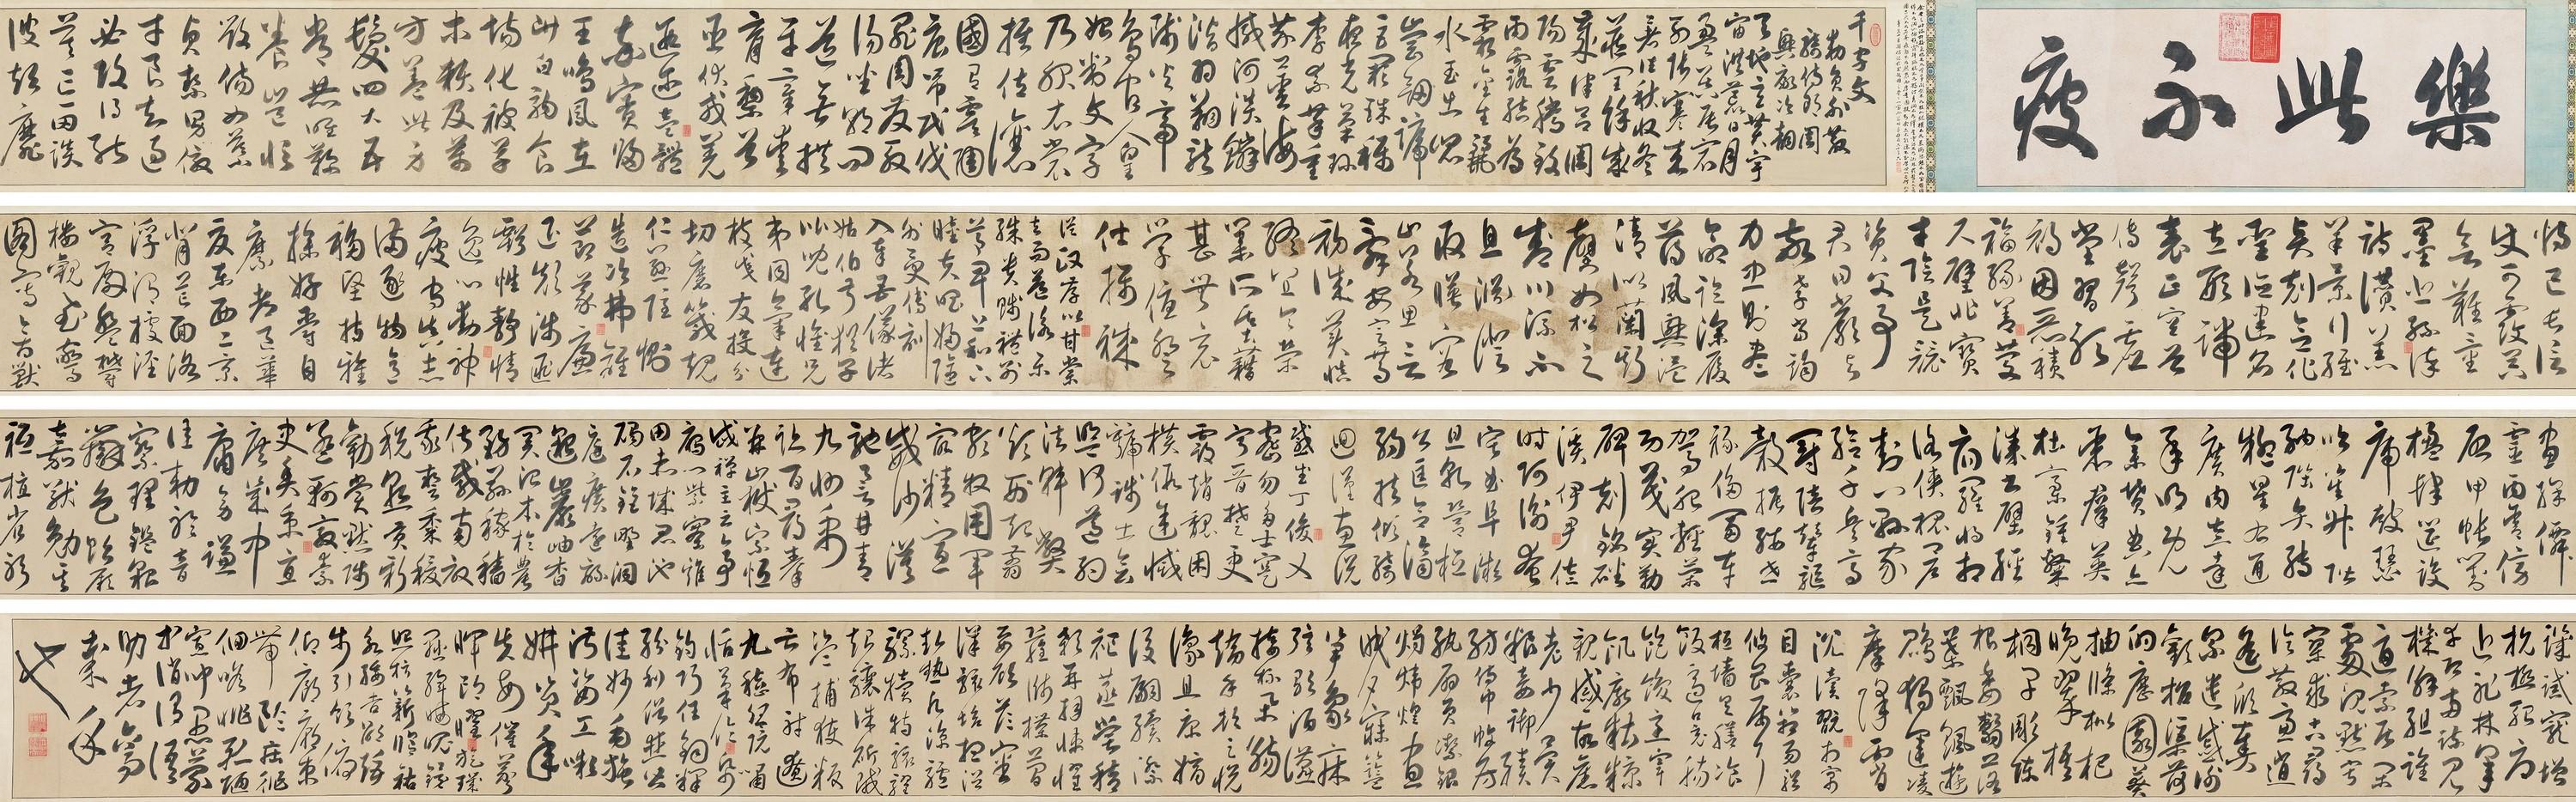 樂此不疲
千字文
勑員外散
騎侍郎周
興嗣次韻
天地玄黃宇
宙洪荒日月
盈昃辰宿
列張寒來
暑往秋收冬
藏閏餘成
歲律呂調
陽雲騰致
雨露結為
霜金生麗
水玉出崑
崗劍號
巨闕珠稱
夜光菓珍
李柰菜重
芥薑海
鹹河淡鱗
潛羽翔龍
師火帝
鳥官人皇
始制文字
乃服衣裳
推位讓
國有虞陶
唐弔民伐
罪周發殷
湯坐朝問
道垂拱
平章愛
育黎首
臣伏戎羌
遐邇壹體
率賓歸
王鳴鳳在
樹白駒食
場化被草
木賴及萬
方蓋此身
髮四大五
常恭惟鞠
養豈敢
毀傷女慕
貞絜男效
才良知過
必改得能
莫忘罔談
彼短靡
恃己長信
使可覆器
欲難量
墨悲絲染
詩讚羔
羊景行維
賢剋念作
聖德建名
立形端
表正空谷
傳聲虛
堂習聽
禍因惡積
福緣善慶
尺璧非寶
寸陰是競
資父事
君曰嚴與
敬孝當竭
力忠則盡
命臨深履
薄夙興溫
清似蘭斯
馨如松之
盛川流不
息淵澄
取暎容
止若思言
辭安定篤
初誠美慎
終宜令榮
業所基藉
甚無竟
學優登
仕攝職
從政存以甘棠
去而益詠樂
殊貴賤禮別
尊卑上和下
睦夫唱婦隨
外受傅訓
入奉母儀諸
姑伯叔猶子
比兒孔懷兄
弟同氣連
枝交友投分
切磨箴規
仁慈隱惻
造次弗離
節義廉
退顛沛匪
虧性靜情
逸心動神
疲守真志
滿逐物意
移堅持雅
操好爵自
縻都邑華
夏東西二京
背芒面洛
浮渭據涇
宮殿盤鬱
樓觀飛驚
圖寫禽獸
畫綵僊
靈丙舍傍
啟甲帳對
楹肆筵設
席鼓瑟
吹笙升階
納陛弁轉
疑星右通
廣內左達
承明既
集墳典亦
聚群英
杜稾鍾隸
漆書壁經
府羅將相
路俠槐卿
戶封八縣家
給千兵高
冠陪輦驅
轂振纓世
祿侈富車
駕肥輕策
功茂實勒
碑刻銘磻
溪伊尹佐
時阿衡奄
宅曲阜微
旦孰營桓
公匡合濟
弱扶傾綺
迴漢惠說
感武丁俊乂
密勿多士寔
寧晉楚更
霸趙魏困
橫假途滅
虢踐土會
盟何遵約
法韓弊
煩刑起翦
頗牧用軍
最精宣
威沙漠
馳譽丹青
九州禹
跡百郡秦
并嶽宗恒
岱禪主云亭
雁門紫塞雞
田赤城昆池
碣石鉅野洞
庭曠遠綿
邈巖岫杳
冥治本於農
務茲稼穡
俶載南畝
我藝黍稷
稅熟貢新
勸賞黜陟
孟軻敦素
史魚秉直
庶幾中
庸勞謙
謹勅聆音
察理鑑貌
辨色貽厥
嘉猷勉其
祗植省躬
譏誡寵增
抗極殆辱
近恥林皋
幸即兩疏見
機解組誰
逼索居閑
處沉默寂
寥求古尋
論散慮逍
遙欣奏
累遣慼謝
歡招渠荷
的歷園莽
抽條枇杷
晚翠梧
桐早彫陳
根委翳落
葉飄颻遊
鵾獨運凌
摩絳霄
耽讀翫市寓
目囊箱易輶
攸畏屬耳
垣牆具膳飡
飯適口充腸
飽飫烹宰
飢厭糟糠
親戚故舊
老少異
糧妾御績
紡侍巾帷房
紈扇員潔銀
燭煒煌晝
眠夕寐籃
笋象床
弦歌酒讌
接杯舉觴
矯手頓足悅
豫且康嫡
後嗣續祭
祀蒸嘗稽
顙再拜悚懼
牋牒簡
要顧答審
詳骸垢想浴
執熱願涼驢
騾犢特駭躍
超驤誅斬賊
盜捕獲叛
亡布射遼
丸嵇琴阮嘯
恬筆倫紙
鈞巧任釣釋
紛利俗並皆
佳妙毛施
淑姿工顰
妍笑年
矢每催羲
暉朗曜旋璣
懸斡晦魄環
照指薪脩祜
永綏吉劭矩
步引領俯
仰廊廟束
帶矜莊徘
徊瞻眺孤陋
寡聞愚蒙
等誚謂語
助者焉
哉乎
也